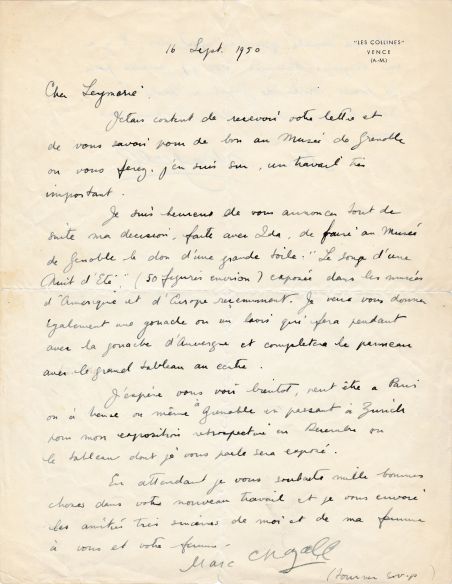 "LES COLLINES"
VENCE
(A-M.)
16 Sept. 1950
Cher Leymarie.
J'etais content de recevoir votre lettre et
de vous savoir pour de bon au Musée de Grenoble
ou vous ferez, j'en suis sur, un travail très
important.
Je suis heureux de vous annoncer tout de
suite ma decision, faite avec Ida, de faire au Musée
de Grenoble le don d'une grande toile: "Le songe d'une
Nuit d'Eté" (50 figures environ) exposée dans les musées
d'Amerique et d'Europe recemment. Je veux vous donner
également une gouache ou un lavis qui fera pendant
avec la gouache d'Auvergne et completera le panneau
avec le grand tableau au centre.
J'espère vous voir bientot, peut être a Paris
ou à Vence ou même à Grenoble en passant à Zurich
pour mon exposition retrospective en Decembre ou
le tableau dont je vous parle sera exposé.
En attendant je vous souhaite mille bonnes
choses dans votre nouveau travail et je vous envoie
les amitiés très sincères de moi et de ma femme
à vous et votre femme.
Marc Chagall
(tourner s.v.p)